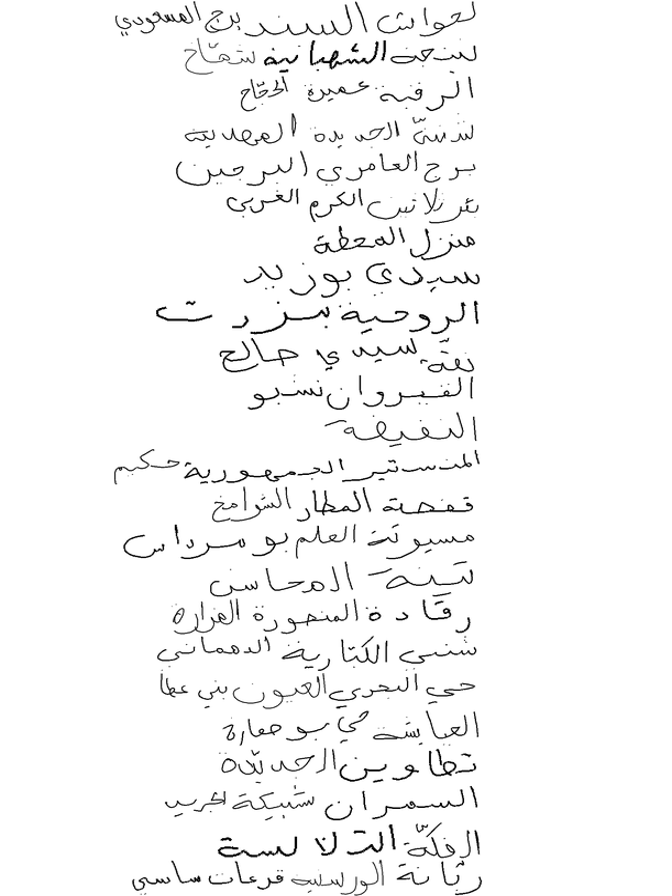 لعواش السند برج المسعودي
الشهبانية شماخ
الرقبة عميرة الحجاج
الجديدة المهدية
برج العامري البرجين
الكرم الغربي
منزل المحطة
سيدي بوزيد
الروحية بنزرت
نقة سيدي صالح
القيروان نسيو
النفيضة
المنستير الجمهورية حكيم
قفصة المطار الشرامخ
مسيوتة العلم بو مرداس
تينة المحاسن
رقادة المنصورة القرارة
شنني الكتارية الدهماني
حي البحري العيون بني عطا
العبابشة حي بو صفارة
تطاوين الجديدة
السمران شبيكة الجريد
الرفكة التلالسة
رتانة الورسية قرعات ساسي